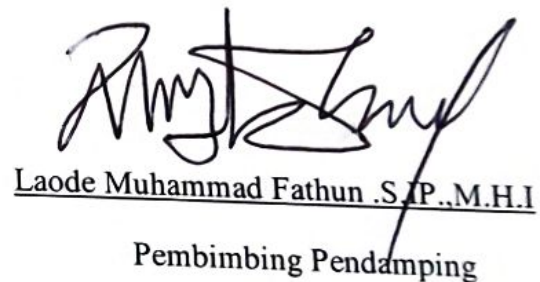 Laode Muhammad Fathun .S.IP.,M.H.I
Pembimbing Pendamping